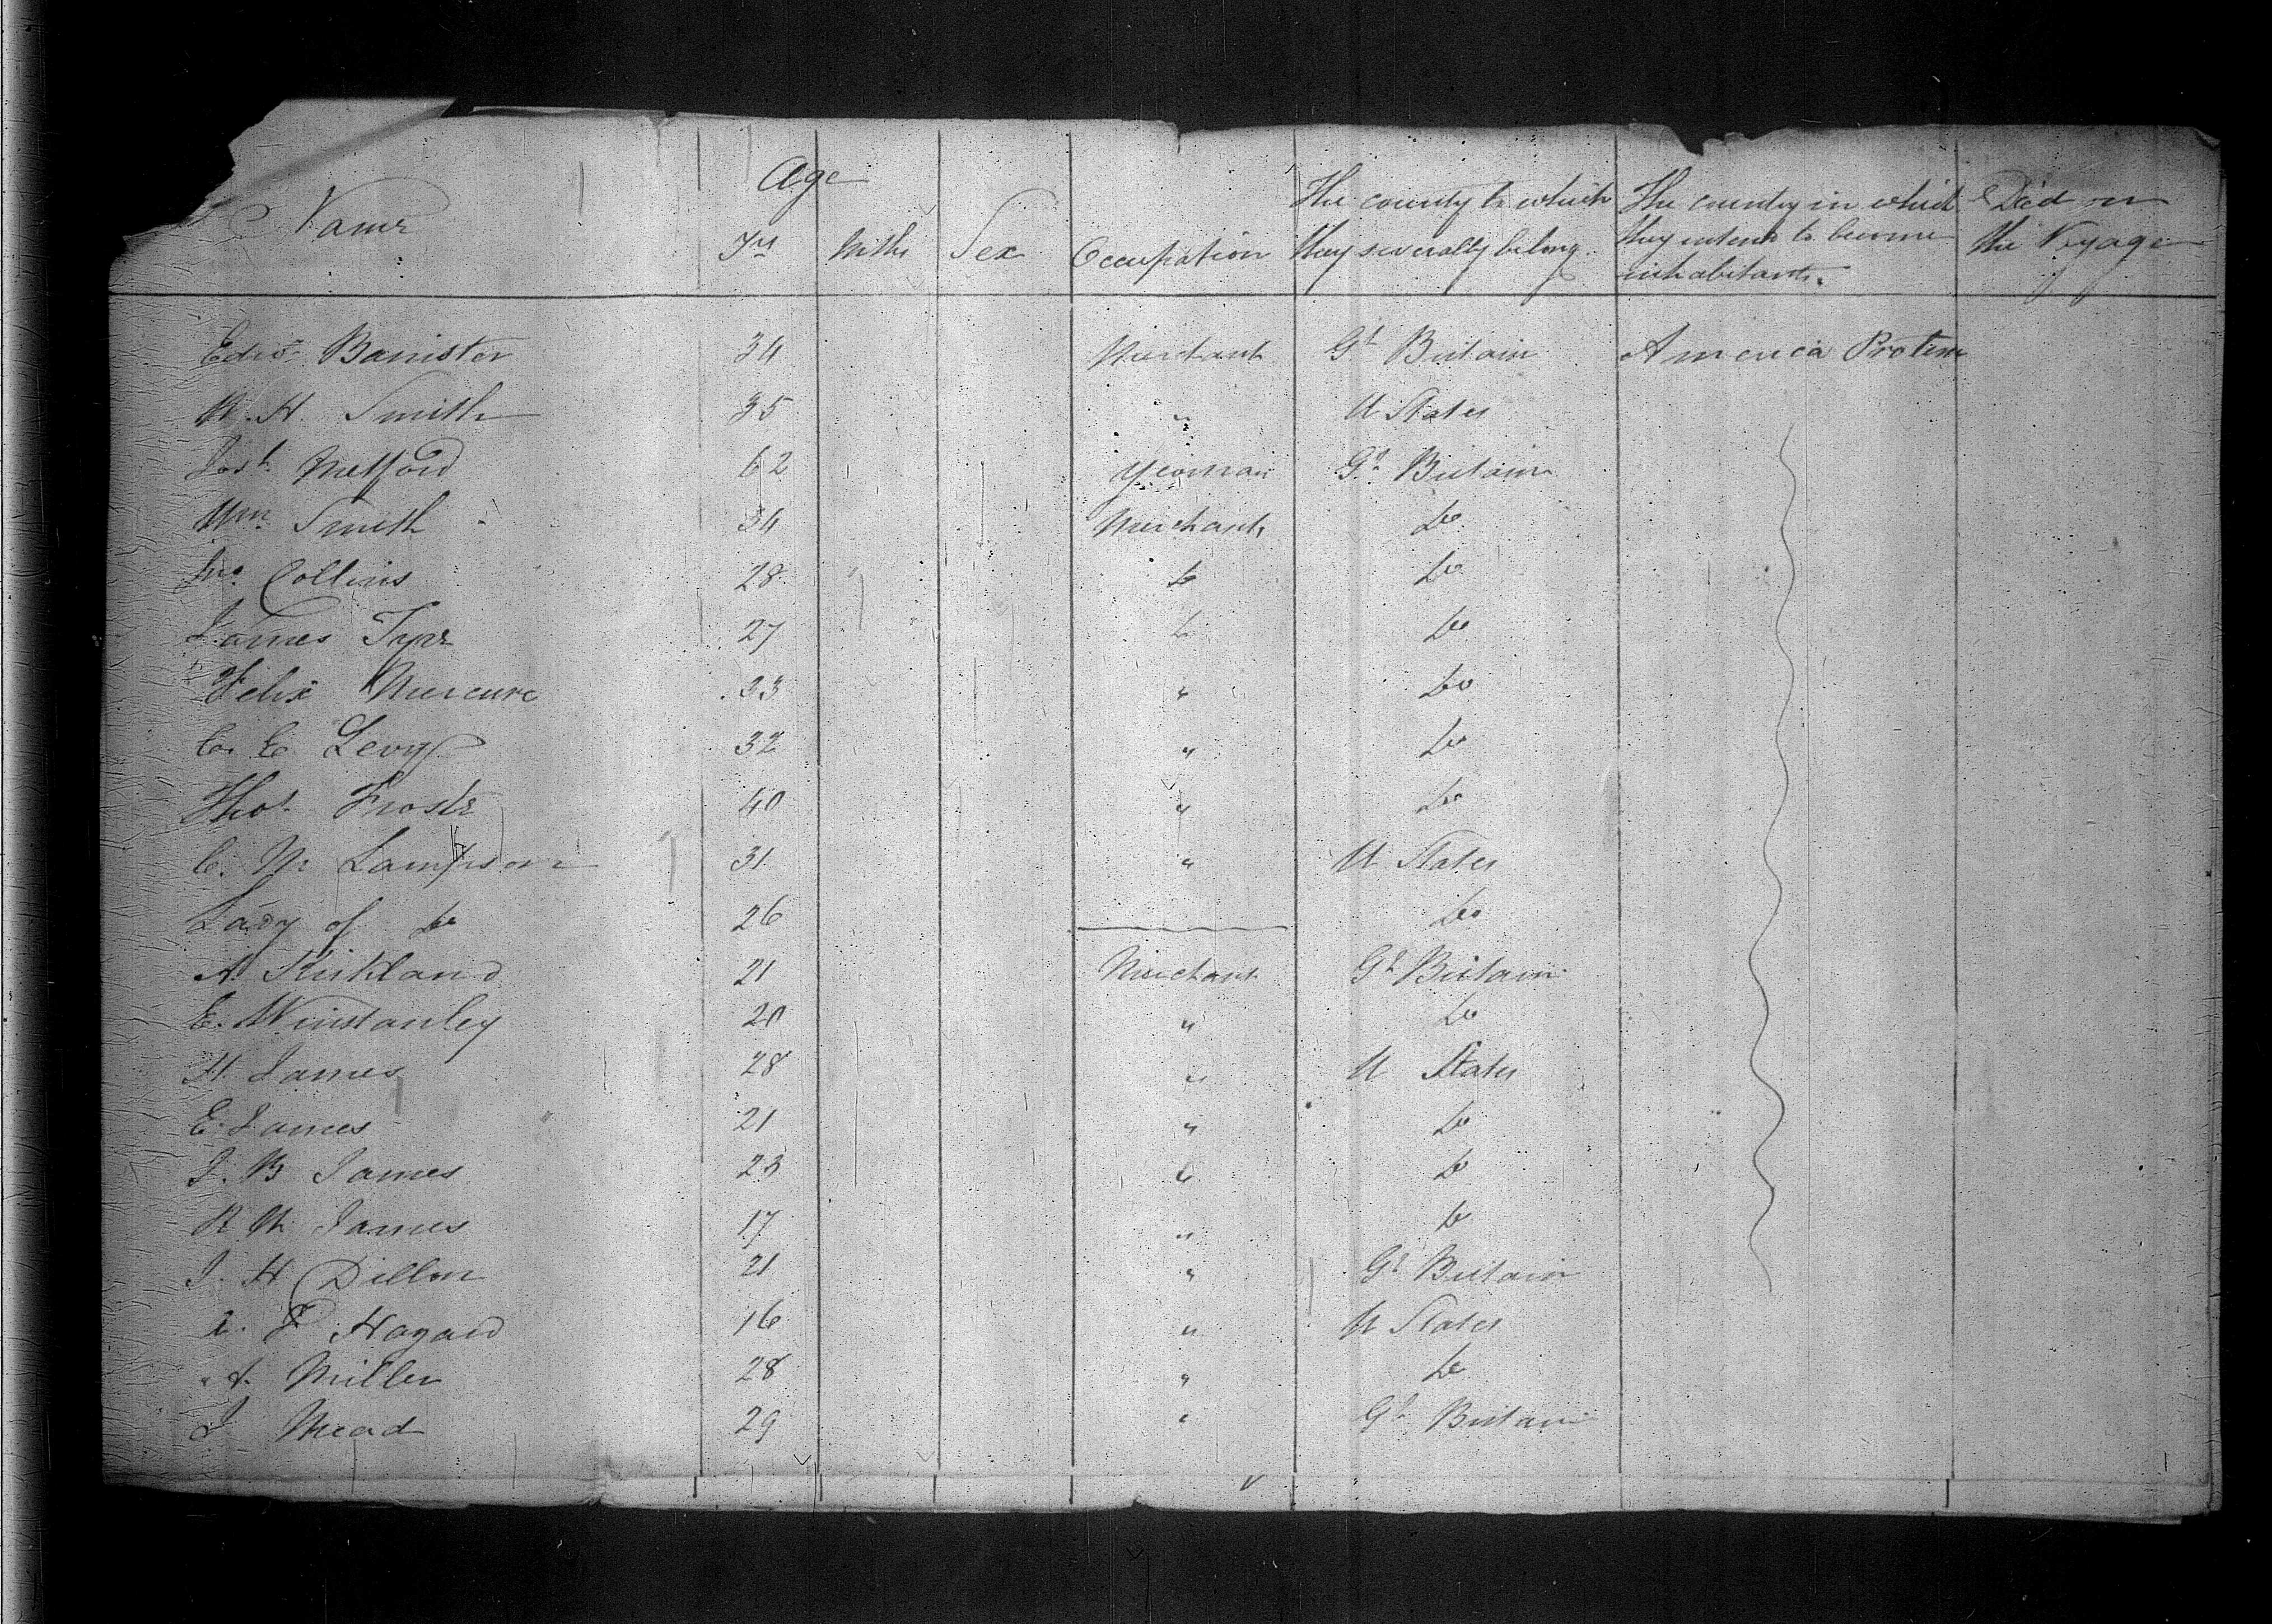 Name Age Yrs Mths Sex Occupation The county to which they severally belong The country in which they intend to become inhabitants. Died on the Voyage
Edwd. Banister 34 Merchant Gt Britain America Protem
R. H. Smith 35 " U States
Josh. Metford 62 Yeoman Gt Britain
Wm. Smith 34 Merchant Do
Jno. Collins 28 Do Do
James Tyre 27 Do Do
Felix Mercure 33 " Do
C. C. Levy 32 " Do
Thos. Froste 40 " Do
C. M Lampson 31 " U States
Lady of Do 26 Do
A. Kirkland 21 Merchant Gt Britain
E. Winstanley 20 " Do
H. James 28 " U States
E. James 21 " Do
J. B James 23 " Do
R W James 17 " Do
J. H Dillon 21 " Gt Britain
P Hazard 16 " U States
A. Miller 28 " Do
J Mead 29 " Gt Britain